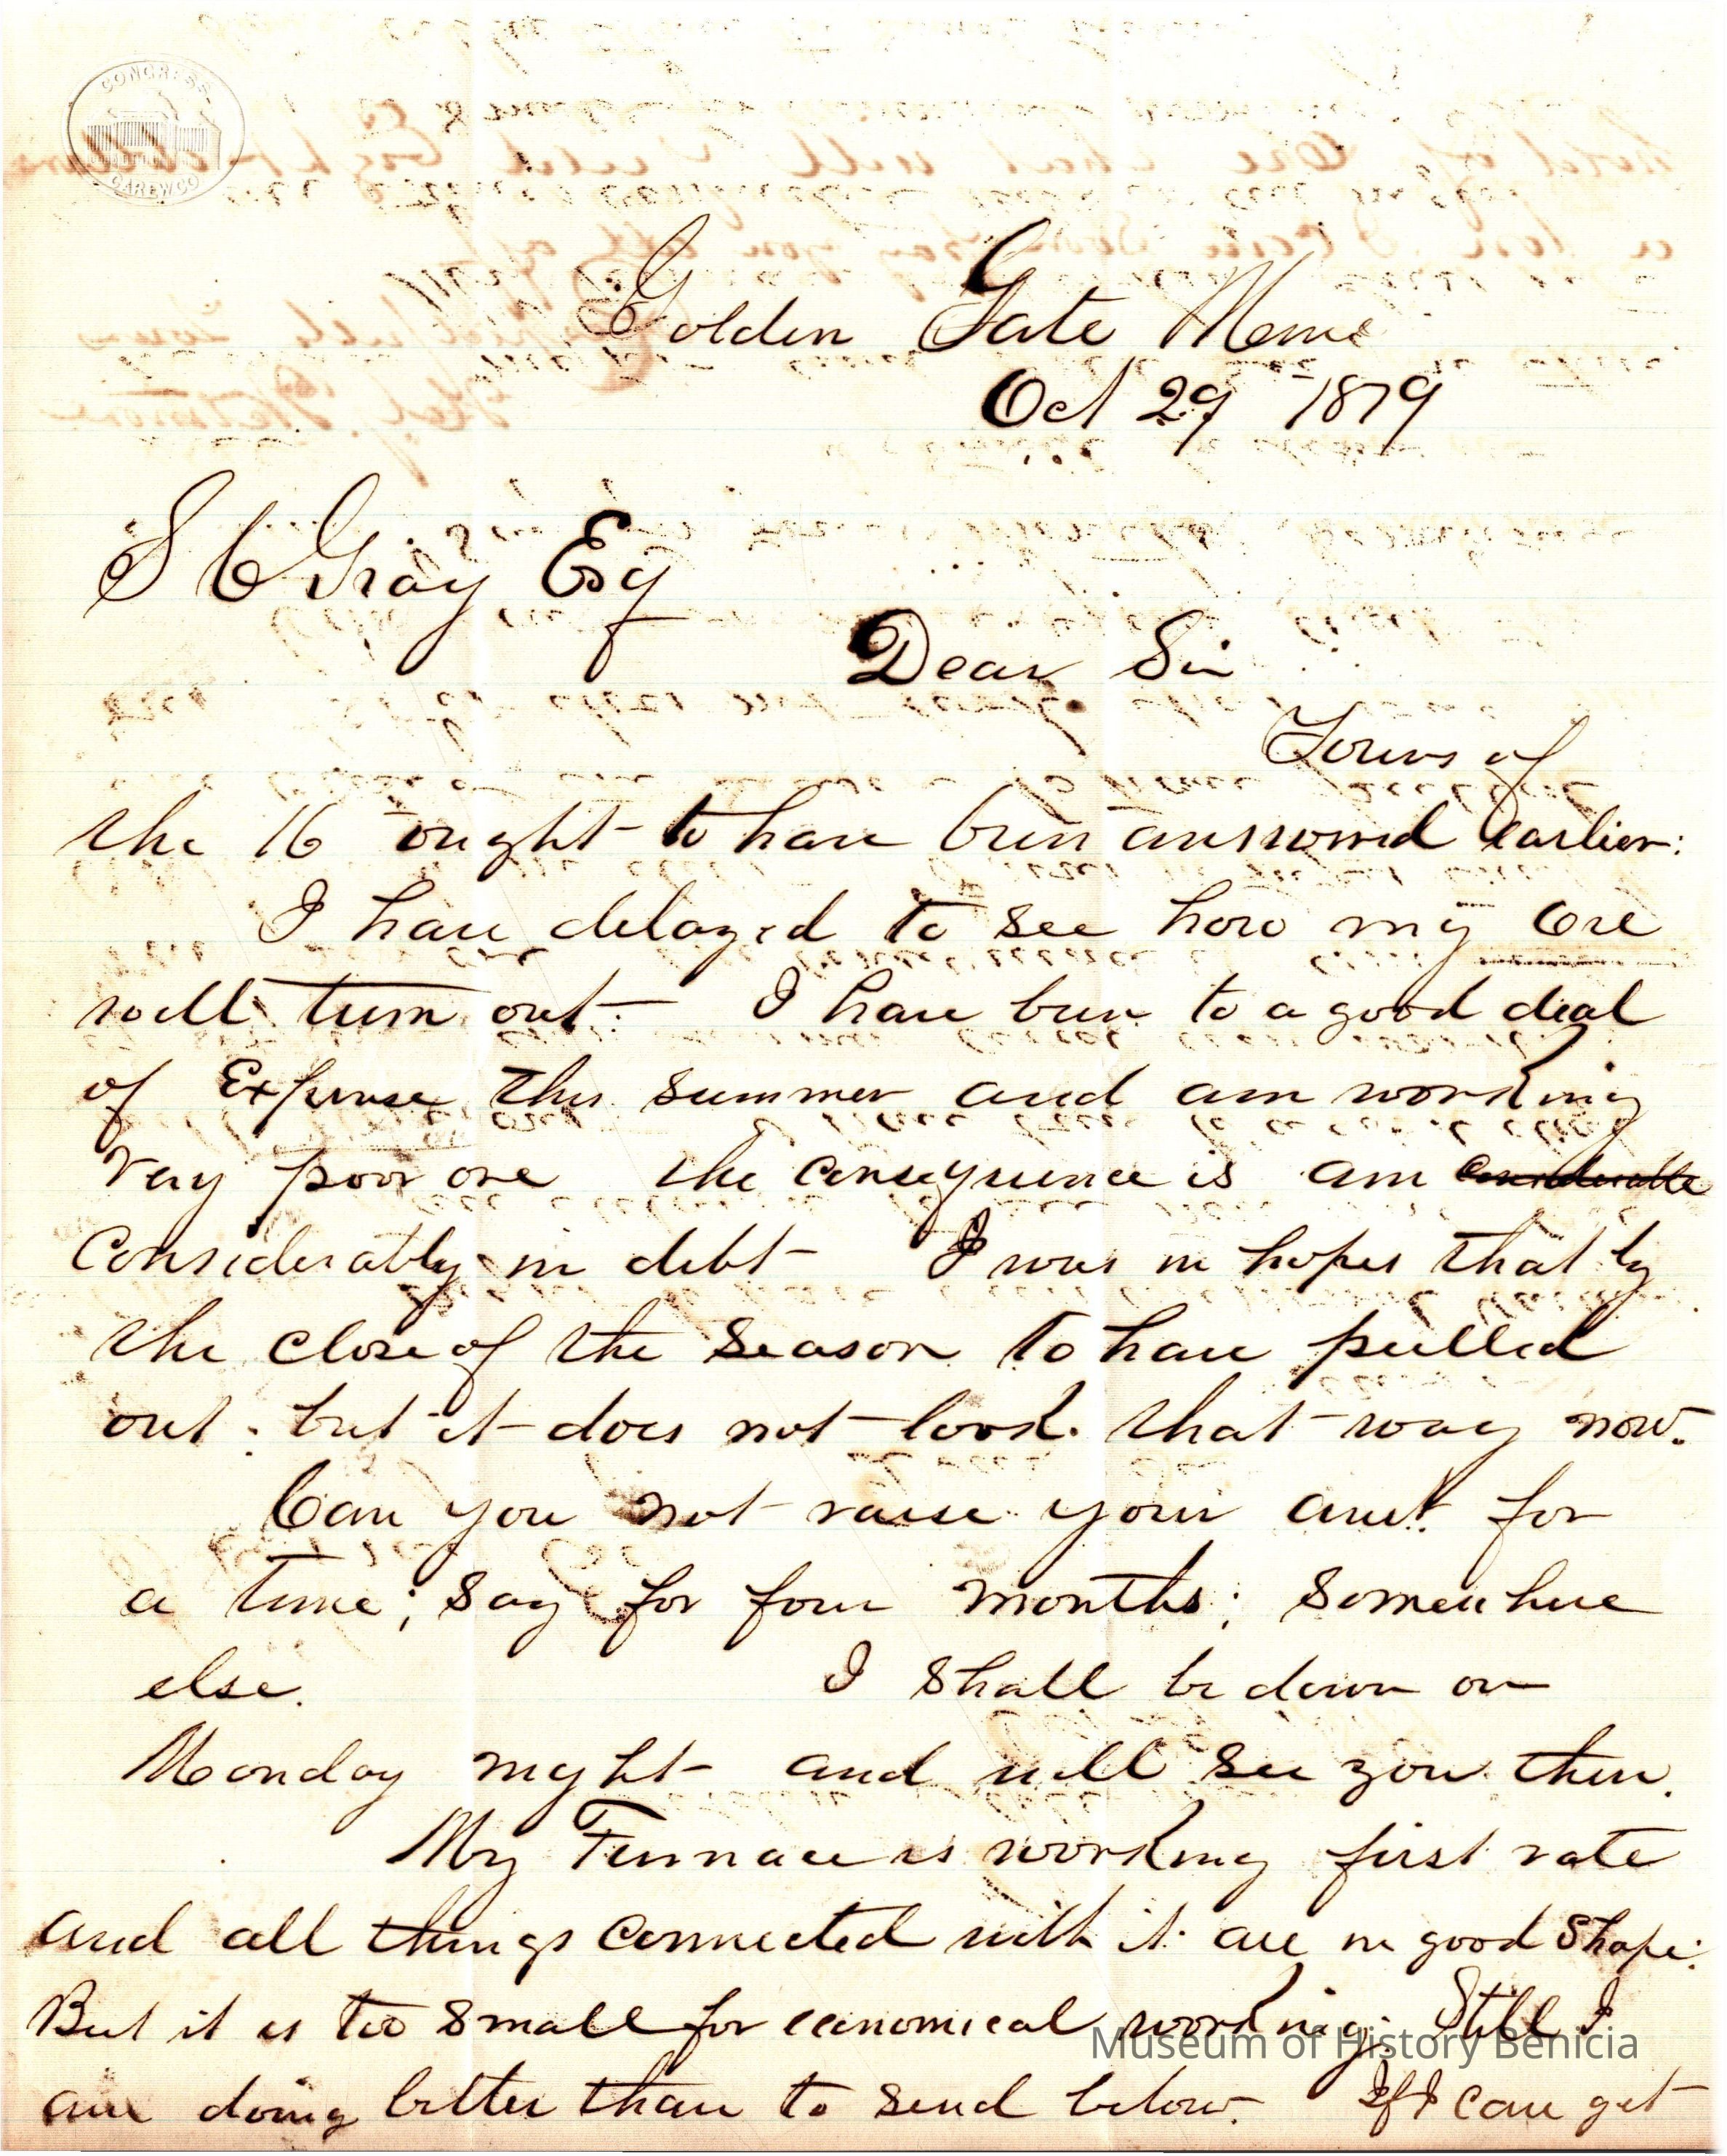 CONGRESS
CAREW CO
Golden Gate Mine
Oct 29 - 1879
S C Gray Esq
Dear Sir
Yours of
the 16 - ought to have been answered earlier:
I have delayed to see how my Ore
will turn out - I have been to a good deal
of Expense this summer and am working
very poor ore the consequence is am considerable
Considerably in debt - I was in hopes that by
the close of the season to have pulled
out: but it does not look that way now.
Can you not raise your amt for
a time; say for four months; somewhere
else. I shall be down on
Monday night - and will see you then.
My Furnace is working first rate
and all things connected with it are in good shape:
But it is too small for economical working: Still I
am doing better than to send below. If I can get
Museum of History Benicia